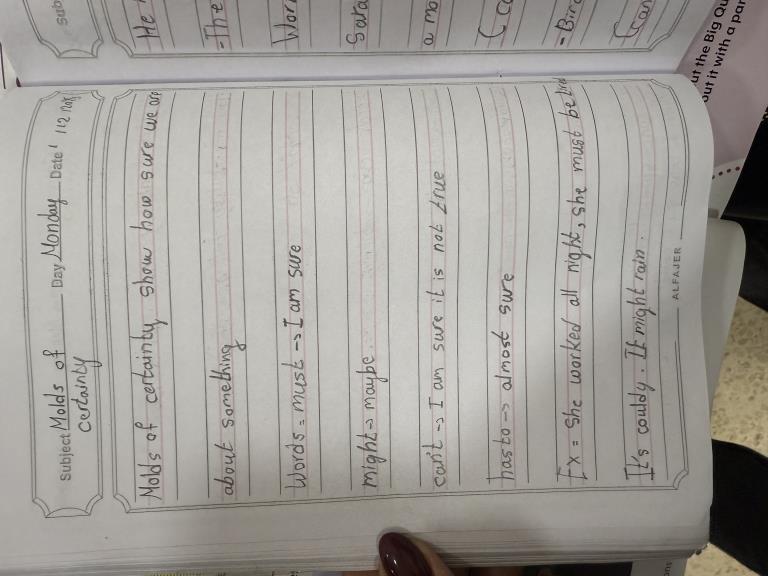 Subject Molds of certainty Day Monday Date
Molds of certainty show how sure we are
about something
Words = must -> I am sure
might -> maybe
can't -> I am sure it is not true
has to -> almost sure
Ex = She worked all night, she must be tired
It's couldy. It might rain.
ALFAJER
Sub
He
- The
Wor
Sara
a mo
- Bird
ut the Big Qu
out it with a par